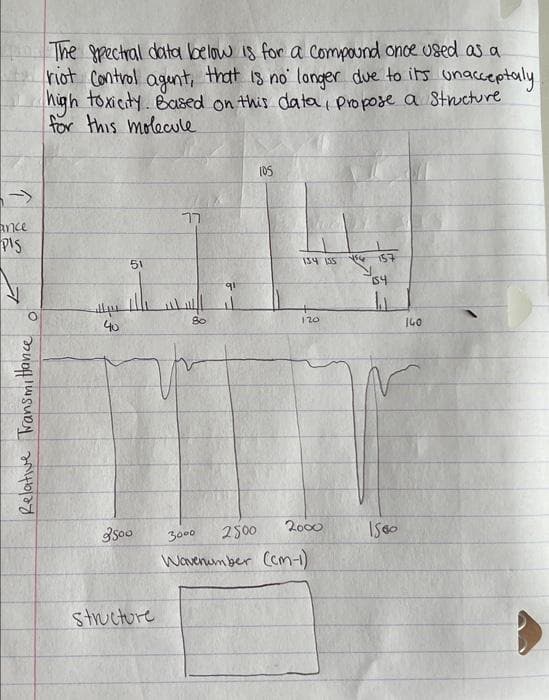 The spectral data below is for a compound once used as a
riot control agent, that is no longer due to its unacceptaly
high toxicity. Based on this data, propose a structure
for this molecule
105
77
ance
pls
51
91
154 155 156 157
154
0
40
80
120
160
Relative Transmittance
3500
3000
2500
2000
1500
Wavenumber (cm-1)
structure